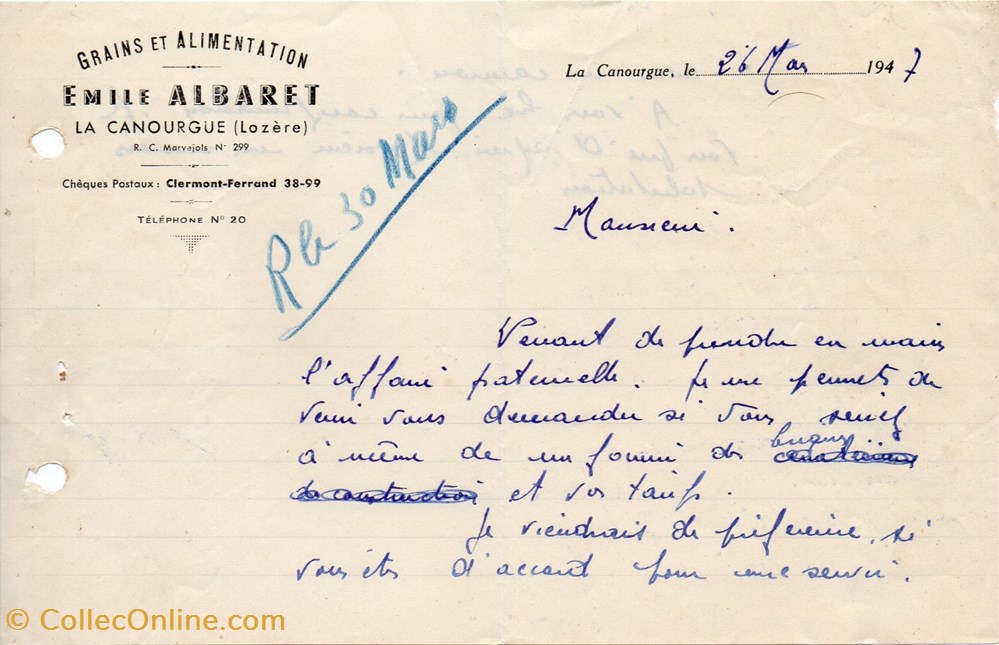 GRAINS ET ALIMENTATION
EMILE ALBARET
LA CANOURGUE (Lozère)
R. C. Marvejols N° 299
Chèques Postaux : Clermont-Ferrand 38-99
TÉLÉPHONE N° 20
La Canourgue, le 26 Mars 1947
R le 30 Mars
Monsieur.
Venant de prendre en mains
l'affaire paternelle. Je me permets de
venir vous demander si vous seriez
à même de me fournir des briques
de construction et vos tarifs.
Je viendrais de préférence, si
vous êtes d'accord pour me servir.
© CollecOnline.com